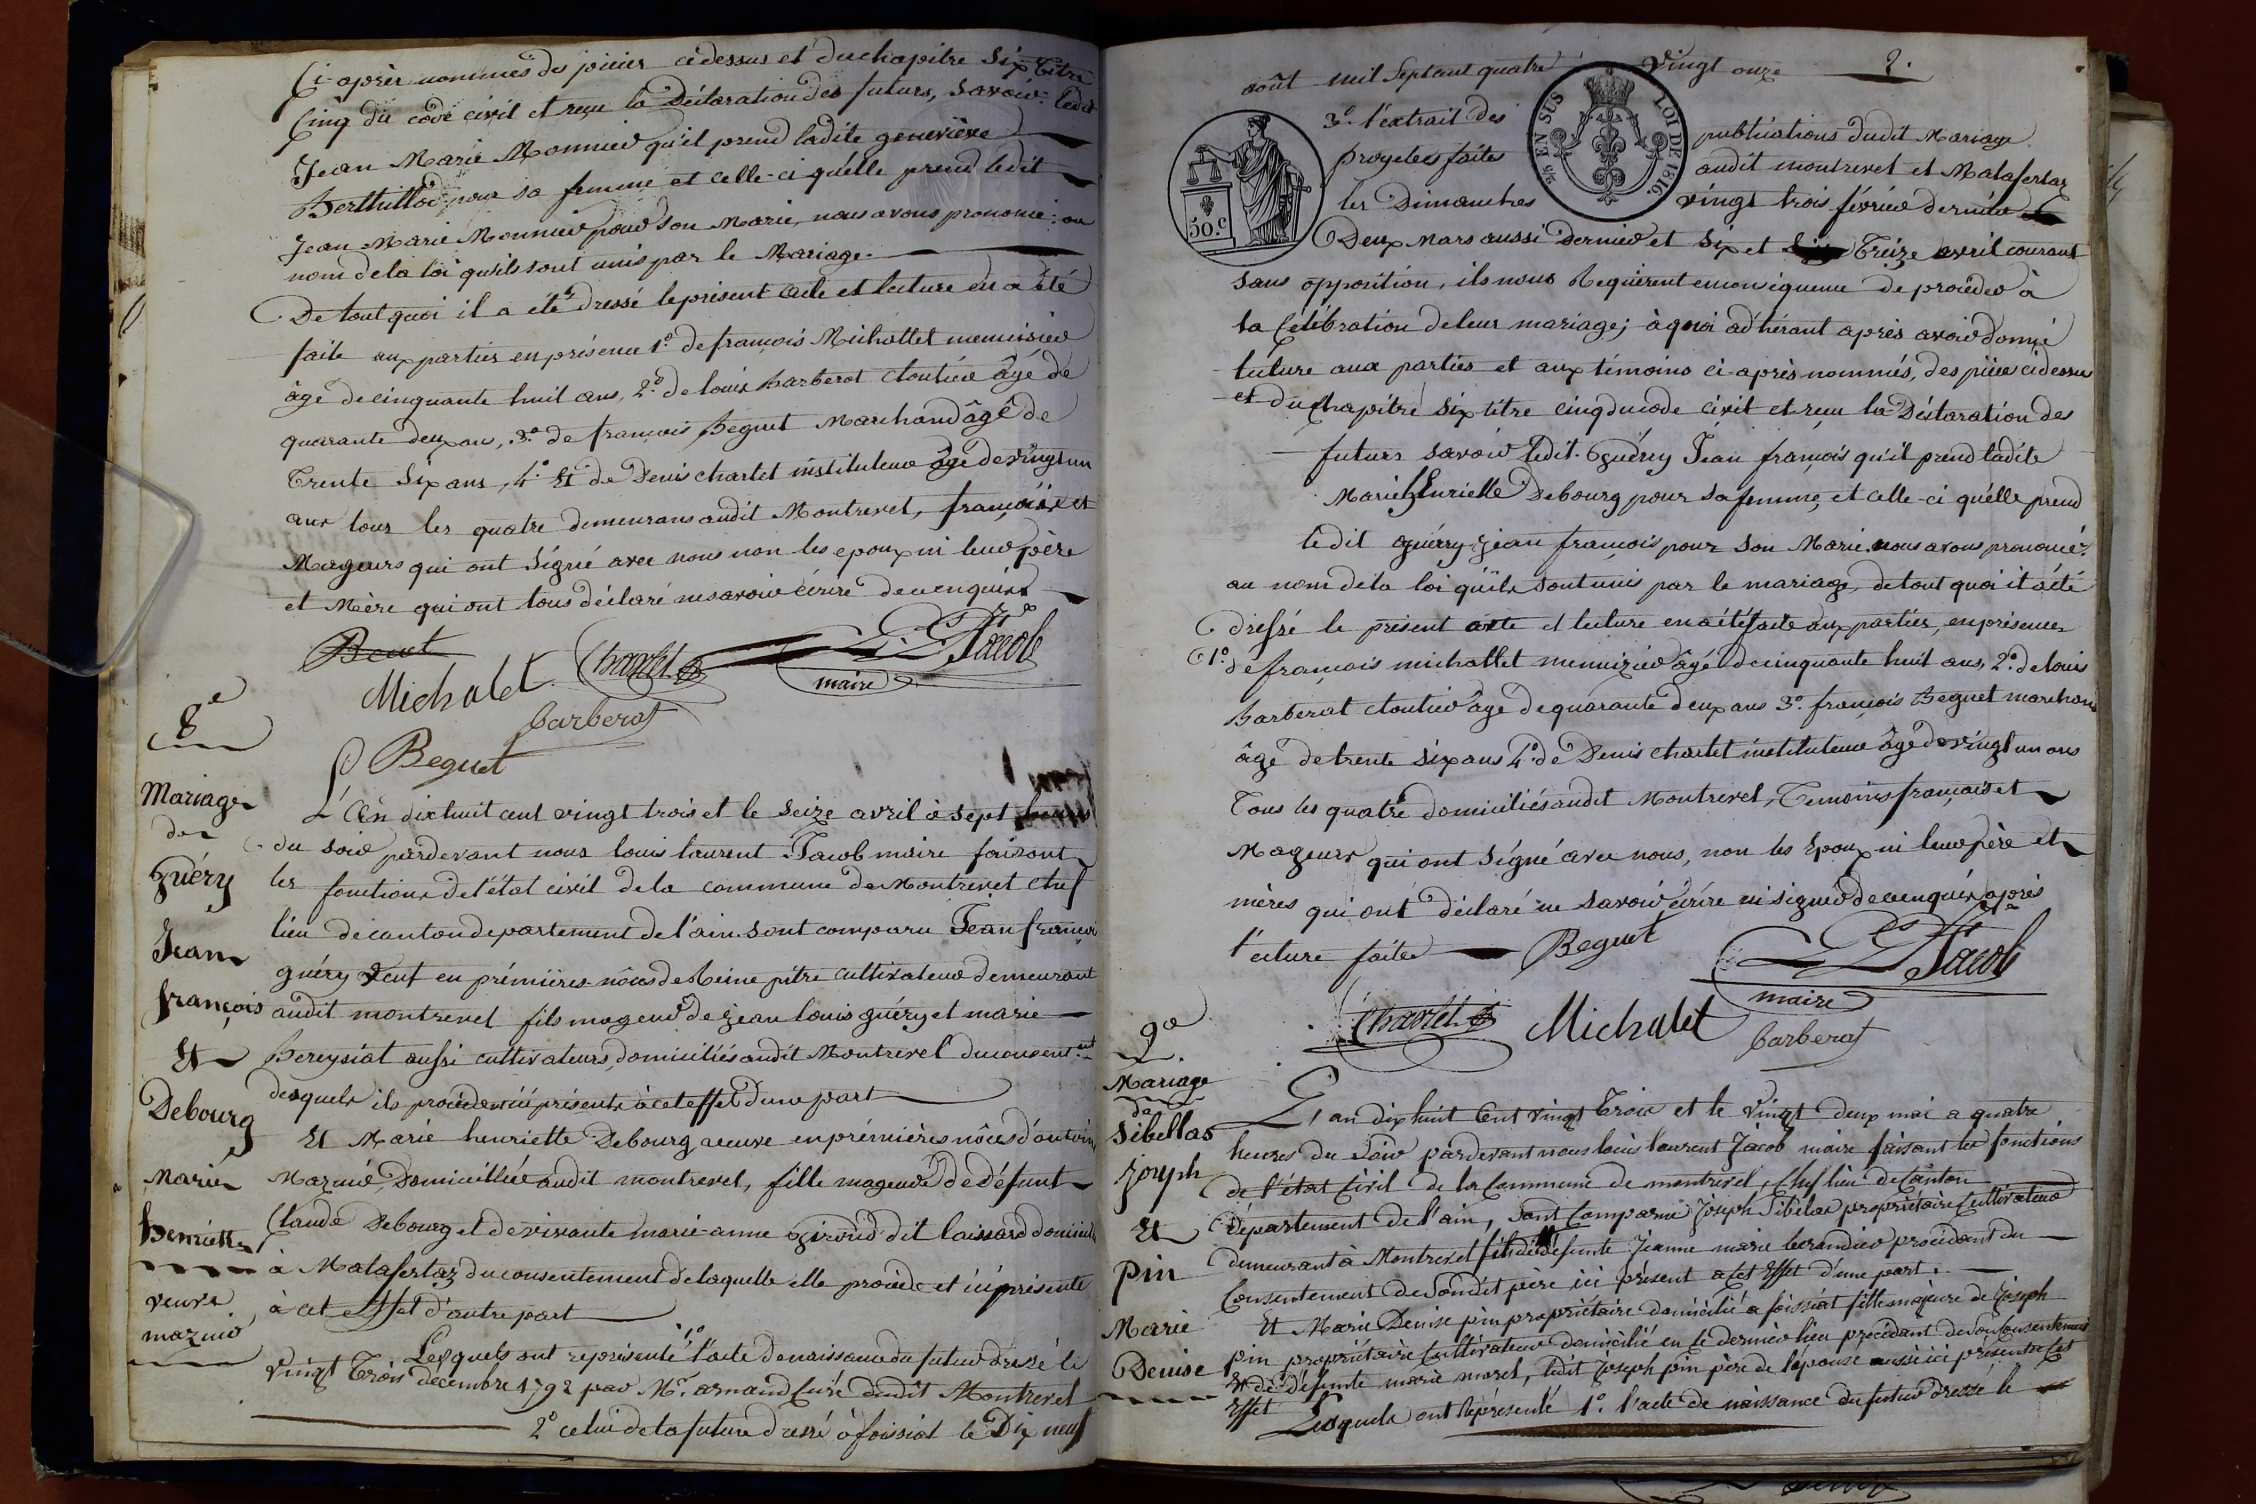 Ci-après nommés des pièces ci dessus et du chapitre Six, titre
Cinq du code civil et reçu la Déclaration des futurs, Savoir: ledit
Jean Marie Monnier qu'il prend ladite geneviève
Berthillod pour sa femme et celle-ci qu'elle prend ledit
Jean Marie Monnier pour son Marie, nous avons prononcé au
nom de la loi qu'ils sont unis par le Mariage.
De tout quoi il a été dressé le présent acte et lecture en a été
faite aux parties en présence 1º. de françois Michallet menuisier
âgé de cinquante huit ans, 2º. de louis Barberot cloutier âgé de
quarante deux ans, 3º. de françois Beguet Marchand âgé de
Trente Six ans, 4º. Et de Denis charlet instituteur âgé de vingt un
ans tous les quatre demeurans audit Montrevel, françaix et
Mageurs qui ont Signé avec nous non les epoux ni leur père
et Mère qui ont tous déclaré ne savoir écrire de ce enquis
Michalet Charlet Jacob
maire
Barberot
Beguet
8e
Mariage
de
guéry
Jean
françois
Et
Debourg
Marie
henriette
veuve
mazuir
L'An dix huit cent vingt trois et le Seize avril à sept heures
du soir pardevant nous louis laurent Jacob maire faisant
les fonctions de l'état civil de la commune de Montrevel chef
lieu de canton departement de l'ain sont comparu Jean françois
guéry veuf en prémières nôces de Reine pitre cultivateur demeurant
audit montrevel fils mageur de jean louis guéry et marie
Bereysiat aussi cultivateurs, domiciliés audit Montrevel du consentent
desquels ils procèdent ici présents à cet effet d'une part
Et Marie henriette Debourg veuve en prémières nôces d'antoine
Mazuir, Domicilliée audit montrevel, fille mageure de défunt
Claude Debourg et de vivante marie-anne Giroud dit laissard domiciliée
à Malafertaz du consentement de laquelle elle procède et ici présente
à cet effet d'autre part
Lesquels ont représenté 1º l'acte de naissance du futur dressé le
vingt Trois decembre 1792 par Mr. arnaud Curé dudit Montrevel
2º celui de la future dressé à foissiat le Dix neuf
2.
août mil Sept cent quatre Vingt onze
3º. l'extrait des publications dudit Mariage
progetées faites audit montrevel et Malafertaz
les Dimanches vingt trois février dernier
EN SUS LOI DE 1816.
50.c
Deux Mars aussi Dernier et Six et Treize avril courant
sans opposition, ils nous Requièrent en conséquence de procéder à
la Célébration de leur mariage; à quoi adhérant après avoir donné
lecture aux parties et aux témoins ci-après nommés, des pièces ci dessus
et du Chapitre six titre cinq du code civil et reçu la Déclaration des
futurs savoir ledit Guérey Jean françois qu'il prend ladite
Marie henriette Debourg pour sa femme, et celle-ci qu'elle prend
ledit guérry jean françois pour son Marie. nous avons prononcé
au nom de la loi qu'ils sont unis par le mariage, de tout quoi il a été
dressé le présent acte et lecture en a été faite aux parties, en présence
1º. de françois michallet menuizier âgé de cinquante huit ans, 2º. de louis
Barberat cloutier âgé de quarante deux ans 3º. françois Beguet marchand
âgé de trente six ans 4º. de Denis charlet instituteur âgé de vingt un ans
Tous les quatre domiciliés audit Montrevel, Temoins françois et
Mageurs qui ont Signé avec nous, non les Epoux ni leur père et
mères qui ont déclaré ne savoir écrire ni signer de ce enquis après
l'ecture faite
Beguet Jacob
maire
Charlet Michalet Barberot
9e
Mariage
de
Sibellas
Joseph
Et
Pin
Marie
Denise
L'an dix huit Cent vingt Trois et le vingt deux mai a quatre
heures du Soir pardevant nous louis laurent Jacob maire faisant les fonctions
de l'état Civil de la Commune de montrevel, Chef lieu de Canton
Département de l'ain, sont Comparu Joseph Sibelas propriétaire Cultivateur
demeurant à Montrevel fils de défunte Jeanne marie berandier procédant du
Consentement de Sondit père ici présent a cet Effet d'une part.
Et Marie Denise pin propriétaire domicilié a foissiat fille majeure de Joseph
pin propriétaire Cultivateur domicilié en le dernier lieu procédant de Son Consentement
Et de défunte marie morel, ledit Joseph pin père de l'épouse aussi ici présent a Cet
Effet Lesquels ont Représenté 1º. l'acte de naissance du futur dressé le